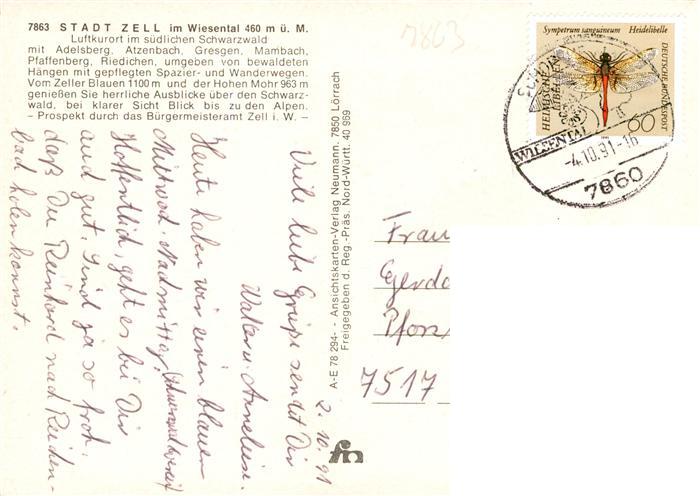 7863 STADT ZELL im Wiesental 460 m ü. M.
Luftkurort im südlichen Schwarzwald
mit Adelsberg, Atzenbach, Gresgen, Mambach,
Pfaffenberg, Riedichen, umgeben von bewaldeten
Hängen mit gepflegten Spazier- und Wanderwegen.
Vom Zeller Blauen 1100 m und der Hohen Mohr 963 m
genießen Sie herrliche Ausblicke über den Schwarz-
wald, bei klarer Sicht Blick bis zu den Alpen.
- Prospekt durch das Bürgermeisteramt Zell i. W. -
7863
Sympetrum sanguineum Heidelibelle
DEUTSCHE BUNDESPOST
HEIMISCHE
LIBELLEN
60
WIESENTAL
-4.10.91-16
7860
A-E 78 294- - Ansichtskarten-Verlag Neumann, 7850 Lörrach
Freigegeben d. Reg.-Präs. Nord-Württ. 40 969
2.10.91
Viele liebe Grüße sendet Dir
Walter u. Anneliese.
Heute haben wir einen blauen
Mittwoch-Nachmittag.
Hoffentlich geht es bei Dir
auch gut. Sind ja so froh,
daß Du Reinhard nach Reiden-
bad holen konnst.
Frau
Gerda
Pfon
7517